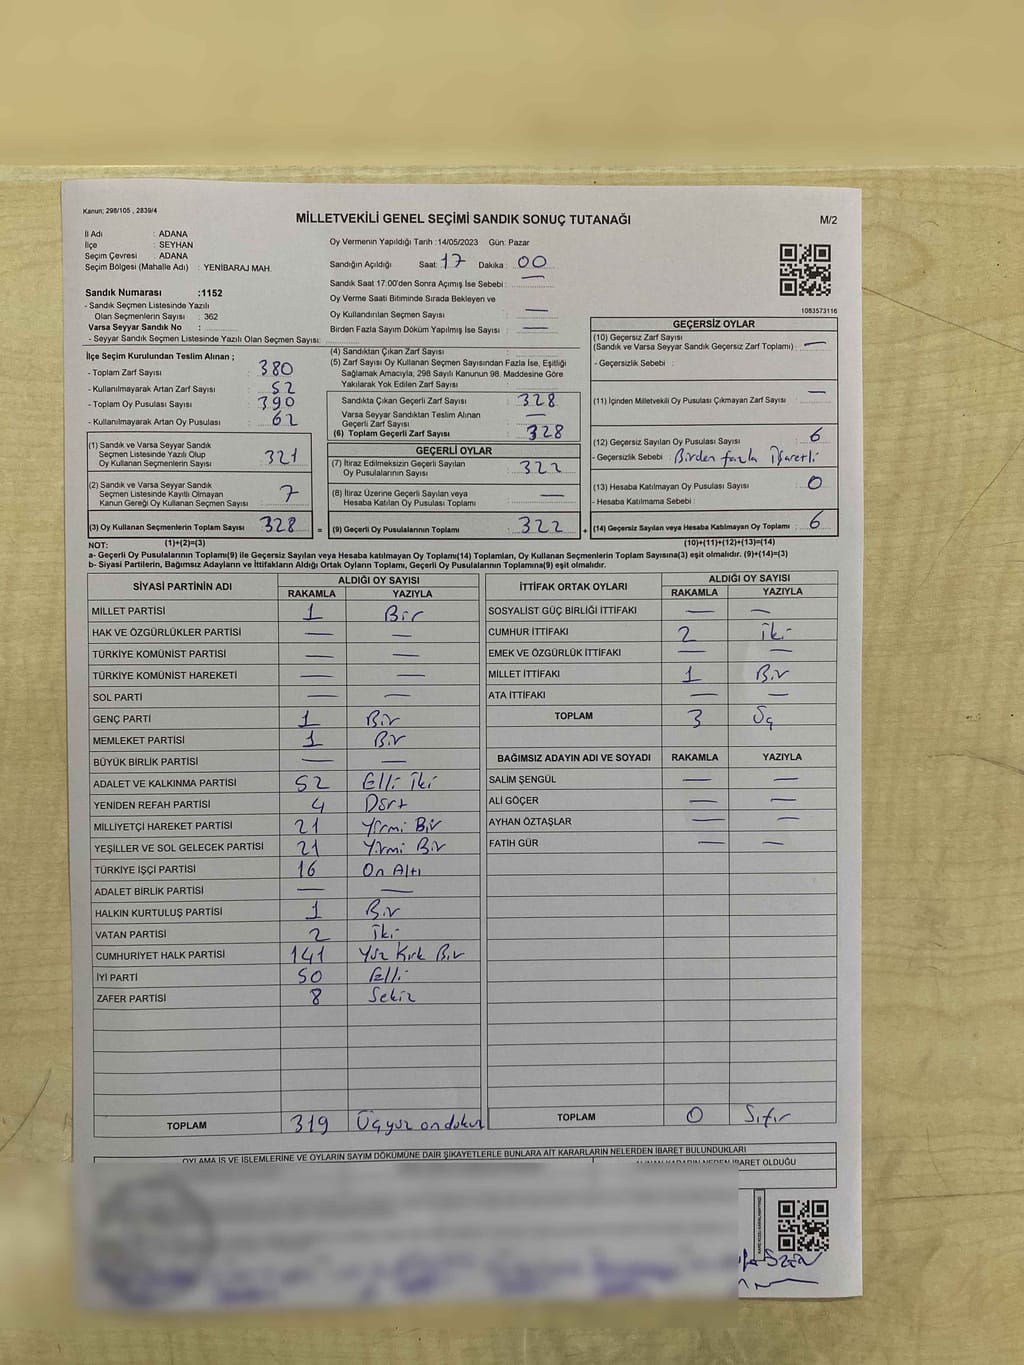 Kanun; 298/105 , 2839/4
MİLLETVEKİLİ GENEL SEÇİMİ SANDIK SONUÇ TUTANAĞI
M/2
İl Adı : ADANA
İlçe : SEYHAN
Seçim Çevresi : ADANA
Seçim Bölgesi (Mahalle Adı) : YENİBARAJ MAH.
Sandık Numarası :1152
- Sandık Seçmen Listesinde Yazılı
Olan Seçmenlerin Sayısı : 362
Varsa Seyyar Sandık No :
- Seyyar Sandık Seçmen Listesinde Yazılı Olan Seçmen Sayısı:
Oy Vermenin Yapıldığı Tarih :14/05/2023 Gün: Pazar
Sandığın Açıldığı Saat: 17 Dakika : 00
Sandık Saat 17:00'den Sonra Açımış İse Sebebi : —
Oy Verme Saati Bitiminde Sırada Bekleyen ve
Oy Kullandırılan Seçmen Sayısı : —
Birden Fazla Sayım Döküm Yapılmış İse Sayısı : —
1083573116
İlçe Seçim Kurulundan Teslim Alınan ;
- Toplam Zarf Sayısı : 380
- Kullanılmayarak Artan Zarf Sayısı : 52
- Toplam Oy Pusulası Sayısı : 390
- Kullanılmayarak Artan Oy Pusulası : 62
(1) Sandık ve Varsa Seyyar Sandık
Seçmen Listesinde Yazılı Olup
Oy Kullanan Seçmenlerin Sayısı : 321
(2) Sandık ve Varsa Seyyar Sandık
Seçmen Listesinde Kayıtlı Olmayan
Kanun Gereği Oy Kullanan Seçmen Sayısı : 7
(3) Oy Kullanan Seçmenlerin Toplam Sayısı : 328 =
(1)+(2)=(3)
(4) Sandıktan Çıkan Zarf Sayısı :
(5) Zarf Sayısı Oy Kullanan Seçmen Sayısından Fazla İse, Eşitliği
Sağlamak Amacıyla, 298 Sayılı Kanunun 98. Maddesine Göre
Yakılarak Yok Edilen Zarf Sayısı :
Sandıkta Çıkan Geçerli Zarf Sayısı : 328
Varsa Seyyar Sandıktan Teslim Alınan
Geçerli Zarf Sayısı : —
(6) Toplam Geçerli Zarf Sayısı : 328
GEÇERLİ OYLAR
(7) İtiraz Edilmeksizin Geçerli Sayılan
Oy Pusulalarının Sayısı : 322
(8) İtiraz Üzerine Geçerli Sayılan veya
Hesaba Katılan Oy Pusulası Toplamı : —
(9) Geçerli Oy Pusulalarının Toplamı : 322 +
GEÇERSİZ OYLAR
(10) Geçersiz Zarf Sayısı
(Sandık ve Varsa Seyyar Sandık Geçersiz Zarf Toplamı) : —
- Geçersizlik Sebebi :
(11) İçinden Milletvekili Oy Pusulası Çıkmayan Zarf Sayısı : —
(12) Geçersiz Sayılan Oy Pusulası Sayısı : 6
- Geçersizlik Sebebi : Birden fazla İşaretli
(13) Hesaba Katılmayan Oy Pusulası Sayısı : 0
- Hesaba Katılmama Sebebi :
(14) Geçersiz Sayılan veya Hesaba Katılmayan Oy Toplamı : 6
(10)+(11)+(12)+(13)=(14)
NOT:
a- Geçerli Oy Pusulalarının Toplamı(9) ile Geçersiz Sayılan veya Hesaba katılmayan Oy Toplamı(14) Toplamları, Oy Kullanan Seçmenlerin Toplam Sayısına(3) eşit olmalıdır. (9)+(14)=(3)
b- Siyasi Partilerin, Bağımsız Adayların ve İttifakların Aldığı Ortak Oyların Toplamı, Geçerli Oy Pusulalarının Toplamına(9) eşit olmalıdır.
SİYASİ PARTİNİN ADI ALDIĞI OY SAYISI
RAKAMLA YAZIYLA
MİLLET PARTİSİ 1 Bir
HAK VE ÖZGÜRLÜKLER PARTİSİ — —
TÜRKİYE KOMÜNİST PARTİSİ — —
TÜRKİYE KOMÜNİST HAREKETİ — —
SOL PARTİ — —
GENÇ PARTİ 1 Bir
MEMLEKET PARTİSİ 1 Bir
BÜYÜK BİRLİK PARTİSİ — —
ADALET VE KALKINMA PARTİSİ 52 Elli İki
YENİDEN REFAH PARTİSİ 4 Dört
MİLLİYETÇİ HAREKET PARTİSİ 21 Yirmi Bir
YEŞİLLER VE SOL GELECEK PARTİSİ 21 Yirmi Bir
TÜRKİYE İŞÇİ PARTİSİ 16 On Altı
ADALET BİRLİK PARTİSİ — —
HALKIN KURTULUŞ PARTİSİ 1 Bir
VATAN PARTİSİ 2 İki
CUMHURİYET HALK PARTİSİ 141 Yüz Kırk Bir
İYİ PARTİ 50 Elli
ZAFER PARTİSİ 8 Sekiz
TOPLAM 319 Üçyüz ondokuz
İTTİFAK ORTAK OYLARI ALDIĞI OY SAYISI
RAKAMLA YAZIYLA
SOSYALİST GÜÇ BİRLİĞİ İTTİFAKI — —
CUMHUR İTTİFAKI 2 İki
EMEK VE ÖZGÜRLÜK İTTİFAKI — —
MİLLET İTTİFAKI 1 Bir
ATA İTTİFAKI — —
TOPLAM 3 Üç
BAĞIMSIZ ADAYIN ADI VE SOYADI RAKAMLA YAZIYLA
SALİM ŞENGÜL — —
ALİ GÖÇER — —
AYHAN ÖZTAŞLAR — —
FATİH GÜR — —
TOPLAM 0 Sıfır
OYLAMA İŞ VE İŞLEMLERİNE VE OYLARIN SAYIM DÖKÜMÜNE DAİR ŞİKAYETLERLE BUNLARA AİT KARARLARIN NELERDEN İBARET BULUNDUKLARI